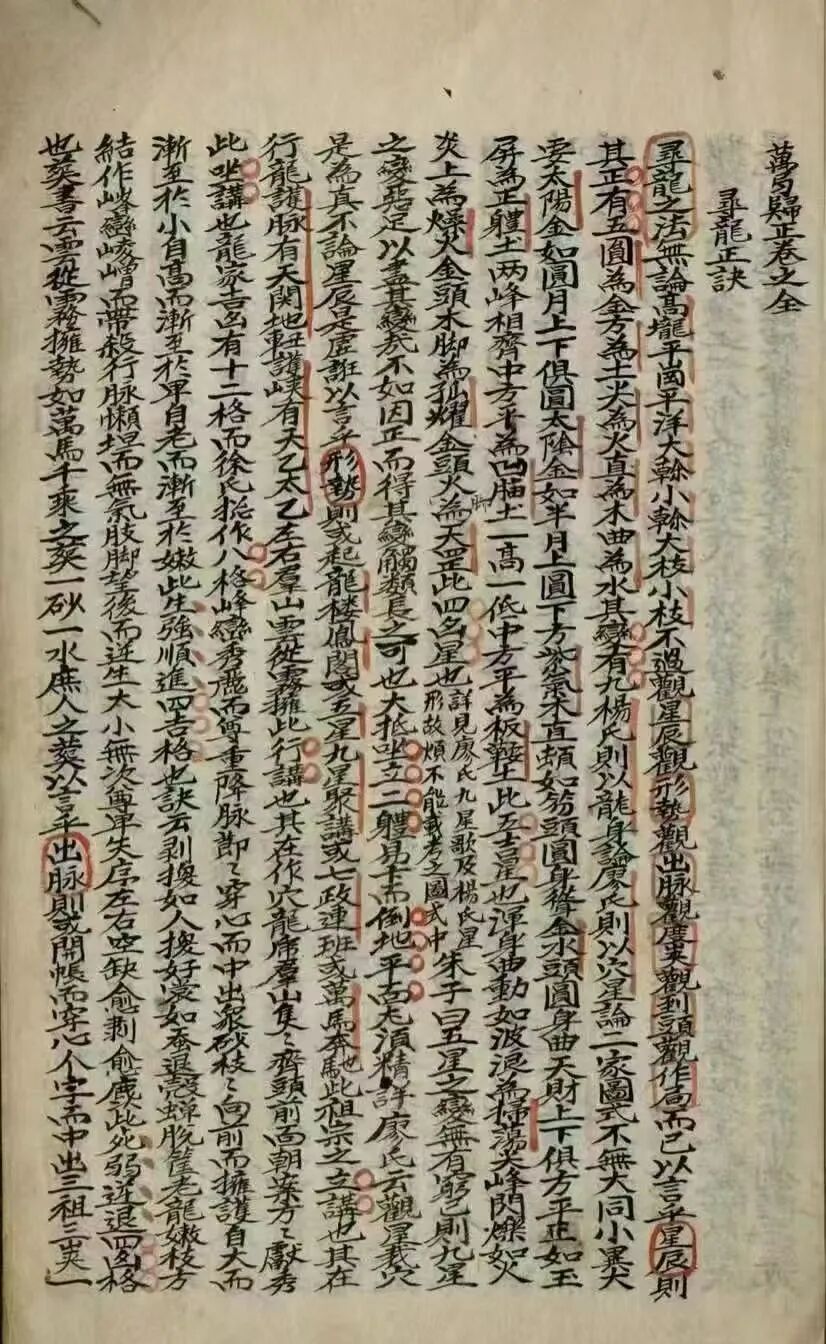 萬勾歸正卷之全
尋龍正訣
尋龍之法無論高壠平崗平洋大幹小幹大枝小枝不過觀星辰觀形勢觀出脉觀度夾觀到頭觀作局而已以言乎星辰則
其正有五圓為金方為土尖為火直為木曲為水其變有九楊氏則以龍身論廖氏則以穴星論二家圖式不無大同小異大
要太陽金如圓月上下俱圓太陰金如半月上圓下方紫氣木直頓如笏頭圓身聳金水頭圓身曲天財上下俱方平正如玉
屏為正體土两峰相齊中方平為凹腦土一高一低中方平為板鞍土此五吉星也渾身曲動如波浪為掃蕩尖峰閃爍如火
炎上為燥火金頭木脚為孤耀金頭火脚為天罡此四名星也詳見廖氏九星歌及楊氏星形故煩不能載考之圖式中朱子曰五星之變無有窮已則九星
之變惡足以盡其變哉不如因正而得其變觸類長之可也大抵坐立二體易卡而倒地平面尤須精詳廖氏云觀星裁穴
是為真不論星辰是虛誑以言乎形勢則或起龍楼鳳閣或五星九星聚講或七政連班或萬馬奔馳也此祖宗之立講也其在
行龍護脉有天関地軸護峽有天乙太乙左右羣山雲從霧擁此行講也其在作穴龍席羣山隻〻齊頭前面朝案方〻獻秀
此坐講也龍家吉凶有十二格而徐氏揔作八格峰巒秀麗而尊重降脉節〻穿心而中出衆砂枝〻向前而擁護自大而
漸至於小自高而漸至於卑自老而漸至於嫩此生強順進四吉格也訣云剥換如人換好裳如蚕退殻蟬脱筐老龍嫩枝方
結作峰巒崚嶒而帶殺行脉懶坦而無氣肢脚望後而逆生大小無次尊卑失序左右空缺愈剥愈麄此死弱逆退四凶格
也葬書云雲從霧擁勢如萬馬千乘之葬一砂一水庶人之葬以言乎出脉則或開帳而穿心个字而中出三祖三宗一